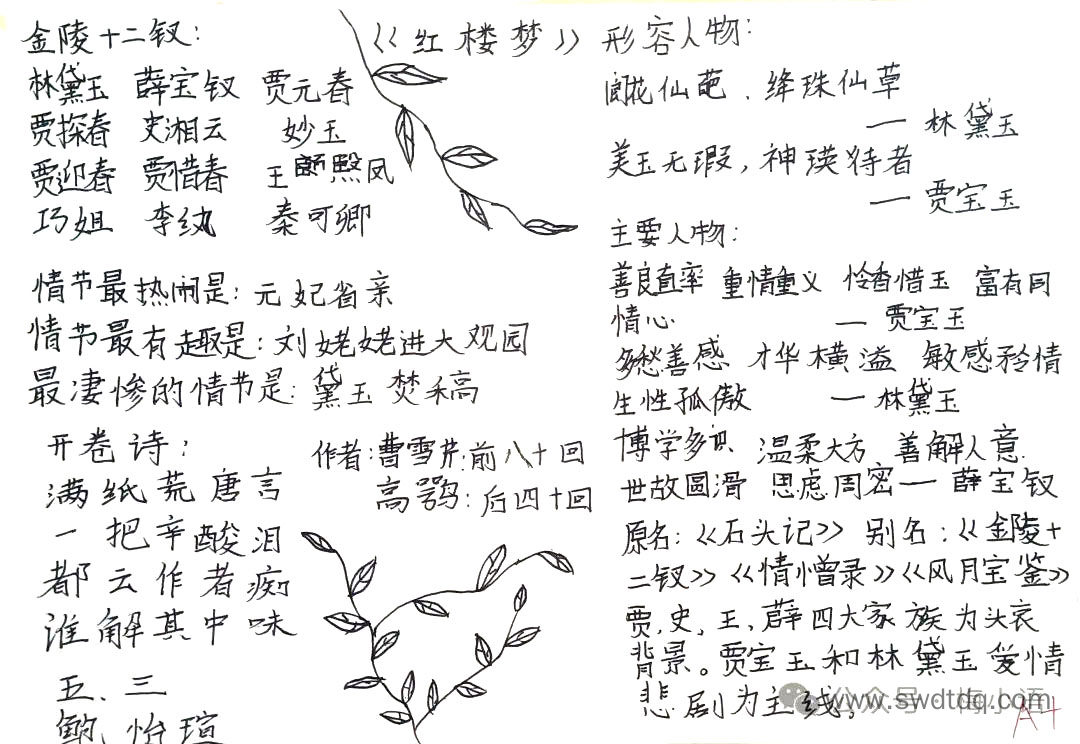 《红楼梦》
金陵十二钗：
林黛玉 薛宝钗 贾元春
贾探春 史湘云 妙玉
贾迎春 贾惜春 王熙凤
巧姐 李纨 秦可卿
情节最热闹是：元妃省亲
情节最有趣是：刘姥姥进大观园
最凄惨的情节是：黛玉焚稿
开卷诗：
满纸荒唐言
一把辛酸泪
都云作者痴
谁解其中味
五、三
鲍怡瑄
作者：曹雪芹：前八十回
高鹗：后四十回
形容人物：
阆苑仙葩、绛珠仙草
— 林黛玉
美玉无瑕，神瑛侍者
— 贾宝玉
主要人物：
善良直率 重情重义 怜香惜玉 富有同
情心 — 贾宝玉
多愁善感 才华横溢 敏感矜情
生性孤傲 — 林黛玉
博学多识 温柔大方 善解人意
世故圆滑 思虑周密 — 薛宝钗
原名：《石头记》 别名：《金陵十
二钗》《情憎录》《风月宝鉴》
贾，史，王，薛四大家族为头衰
背景。贾宝玉和林黛玉爱情
悲剧为主线。
公众号
www.swdtdq.com
A4